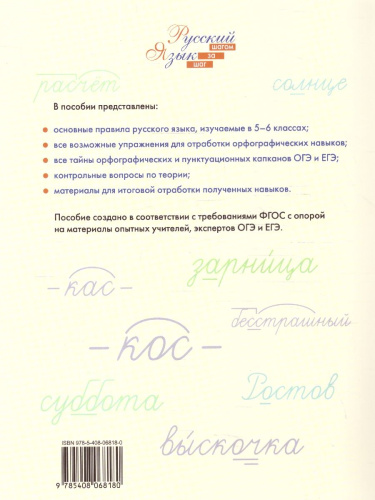 Русский
Язык
шагом
за
шаг
расчёт
солнце
В пособии представлены:
основные правила русского языка, изучаемые в 5–6 классах;
все возможные упражнения для отработки орфографических навыков;
все тайны орфографических и пунктуационных капканов ОГЭ и ЕГЭ;
контрольные вопросы по теории;
материалы для итоговой отработки полученных навыков.
Пособие создано в соответствии с требованиями ФГОС с опорой
на материалы опытных учителей, экспертов ОГЭ и ЕГЭ.
зарни́ца
-кас-
бесстрашный
-кос-
Ростов
суббота
вы́скочка
ISBN 978-5-408-06818-0
9 785408 068180